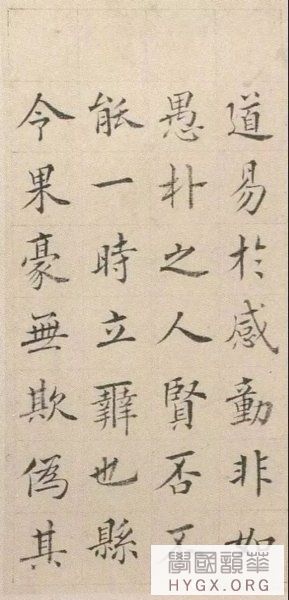 道易於感動非如
愚朴之人賢否不
能一時立辨也縣
令果豪無欺偽其
華韻國學
HYGX.ORG